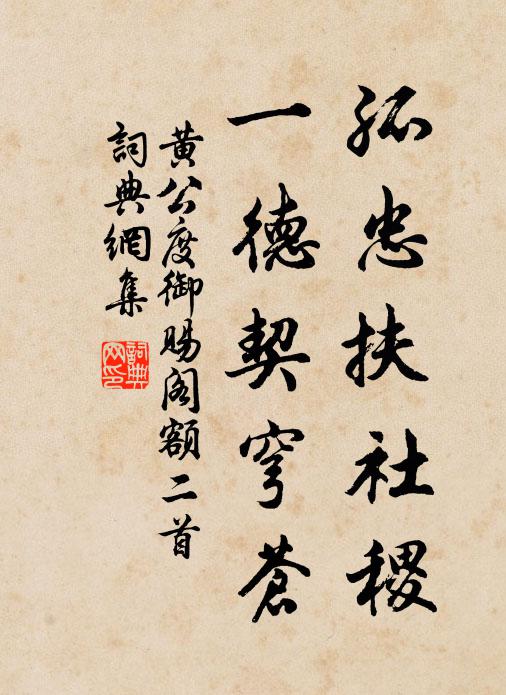 孤忠扶社稷
一德契穹蒼
黃公度御賜閣額二首
詞典網集
詞典網印